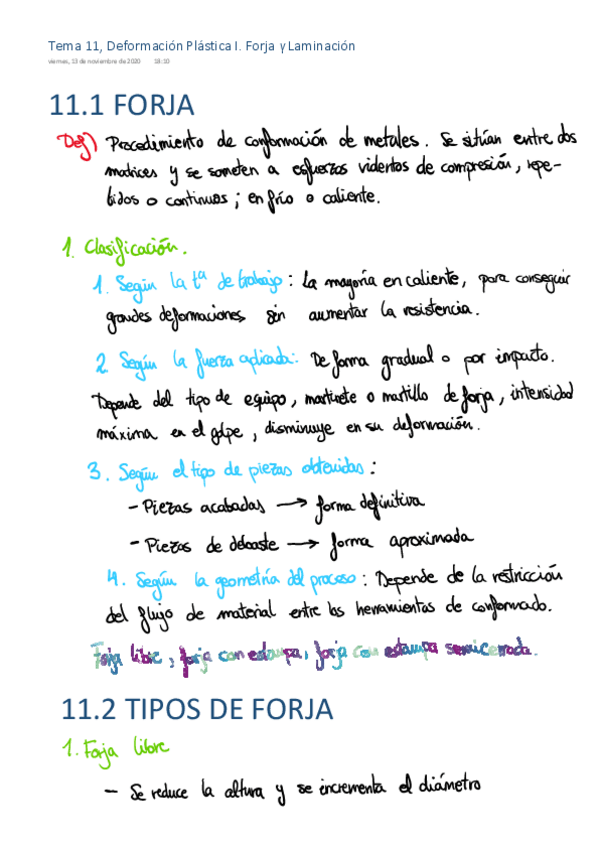 Tema 11, Deformación Plástica I. Forja y Laminación
viernes, 13 de noviembre de 2020 18:10
11.1 FORJA
Def) Procedimiento de conformación de metales. Se sitúan entre dos
matrices y se someten a esfuerzos violentos de compresión, repe-
tidos o continuos; en frío o caliente.
1. Clasificación.
1. Según la tª de trabajo: La mayoría en caliente, para conseguir
grandes deformaciones sin aumentar la resistencia.
2. Según la fuerza aplicada: De forma gradual o por impacto.
Depende del tipo de equipo, martinete o martillo de forja, intensidad
máxima en el golpe, disminuye en su deformación.
3. Según el tipo de piezas obtenidas:
- Piezas acabadas → forma definitiva
- Piezas de debaste → forma aproximada
4. Según la geometría del proceso: Depende de la restricción
del flujo de material entre las herramientas de conformado.
Forja libre, forja con estampa, forja con estampa semicerrada.
11.2 TIPOS DE FORJA
1. Forja libre
- Se reduce la altura y se incrementa el diámetro